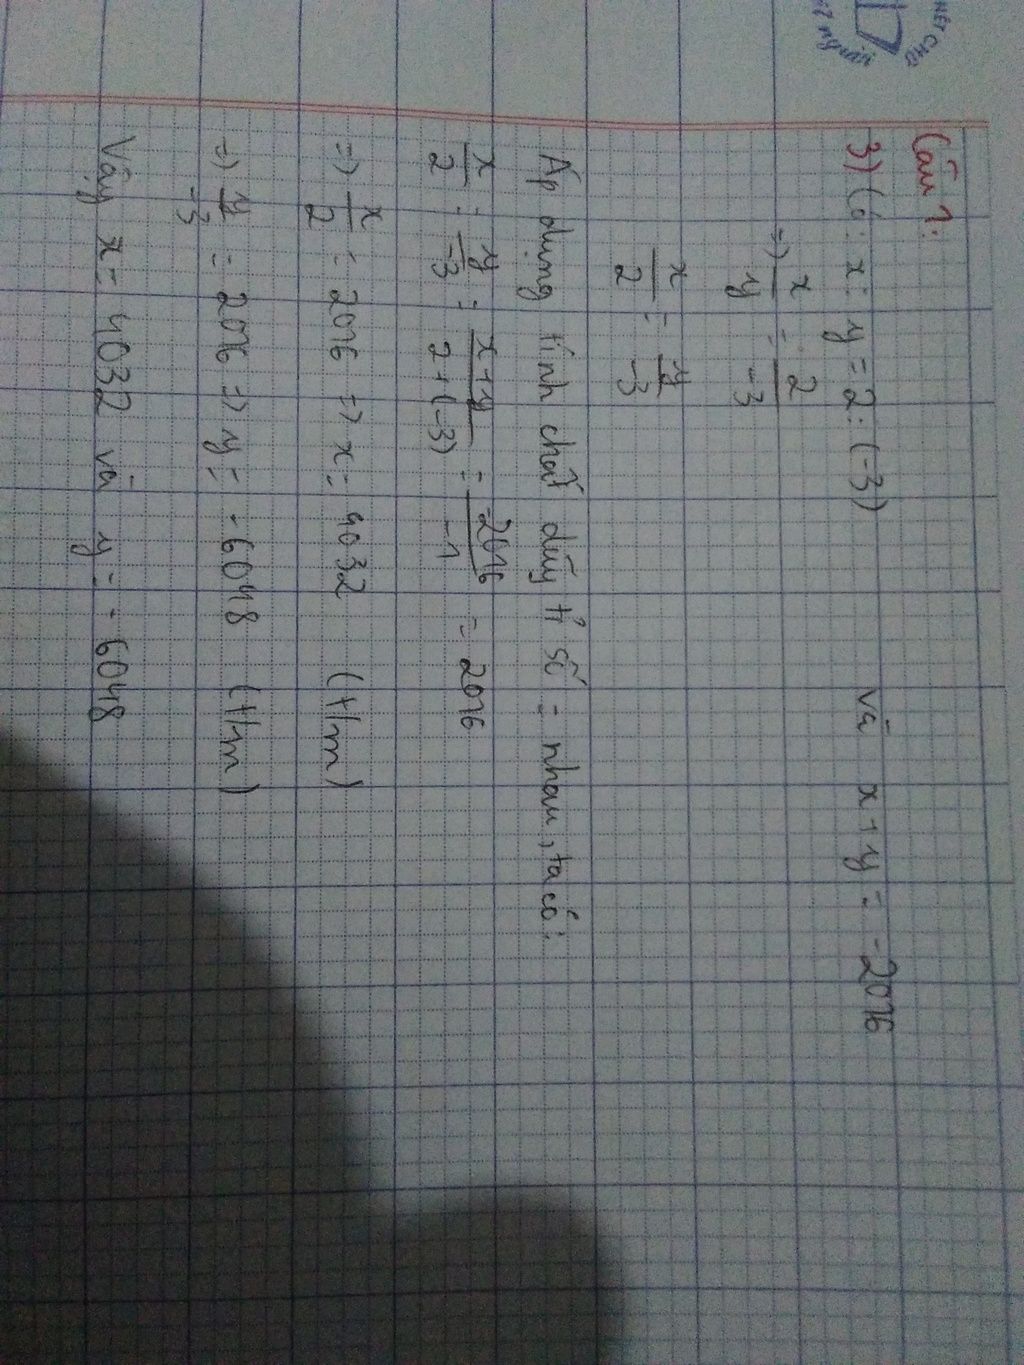 Câu 1:
3) Có: x : y = 2 : (-3) và x + y = -2016
=> x/y = 2/-3
x/2 = y/-3
Áp dụng tính chất dãy tỉ số = nhau, ta có:
x/2 = y/-3 = x+y/2+(-3) = -2016/-1 = 2016
=> x/2 = 2016 => x = 4032 (t/m)
=> y/-3 = 2016 => y = -6048 (t/m)
Vậy x = 4032 và y = -6048